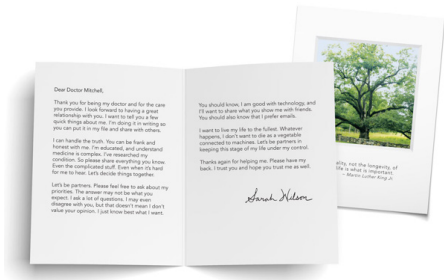 Dear Doctor Mitchell,
Thank you for being my doctor and for the care
you provide. I look forward to having a great
relationship with you. I want to tell you a few
quick things about me. I'm doing it in writing so
you can put it in my file and share with others.
I can handle the truth. You can be frank and
honest with me. I'm educated, and understand
medicine is complex. I've researched my
condition. So please share everything you know.
Even the complicated stuff. Even when it's hard
for me to hear. Let's decide things together.
Let's be partners. Please feel free to ask about my
priorities. The answer may not be what you
expect. I ask a lot of questions. I may even
disagree with you, but that doesn't mean I don't
value your opinion. I just know best what I want.
You should know, I am good with technology, and
I'll want to share what you show me with friends.
You should also know that I prefer emails.
I want to live my life to the fullest. Whatever
happens, I don't want to die as a vegetable
connected to machines. Let's be partners in
keeping this stage of my life under my control.
Thanks again for helping me. Please have my
back. I trust you and hope you trust me as well.
Sarah Wilson
ality, not the longevity, of
life is what is important.
– Martin Luther King Jr.